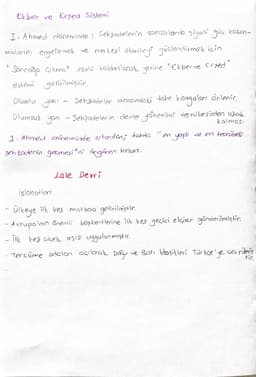 Ekber ve Erşed Sistemi
I. Ahmed döneminde; Şehzadelerin sancaklarda siyasi güç kazan-
malarını engellemek ve merkezi otoriteyi güçlendirmek için
"Sancağa çıkma" usulü kaldırılarak yerine "Ekber ve Erşed"
sistemi getirilmiştir.
Olumlu yanı - Şehzadeler arasındaki taht kavgaları önlenir.
Olumsuz yanı - Şehzadelerin devlet yönetimi tecrübesinden uzak
kalması
I. Ahmed döneminde çıkarılan; tahta "en yaşlı ve en tecrübeli
şehzadenin geçmesi"ni öngören kanun.
Lale Devri
Islahatları
- Ülkeye ilk kez matbaa getirilmiştir.
- Avrupa'nın önemli başkentlerine ilk kez geçici elçiler gönderilmiştir.
- İlk kez çiçek aşısı uygulanmıştır.
- Tercüme odaları açılarak Doğu ve Batı klasikleri Türkçe'ye çevrilmiş-
tir.